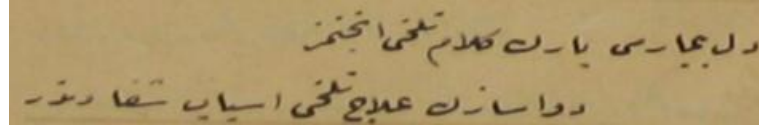 دل بیمارى یارك كلام تلخى انجتمز
دوا سازك علاج تلخى اسباب شفا دندر